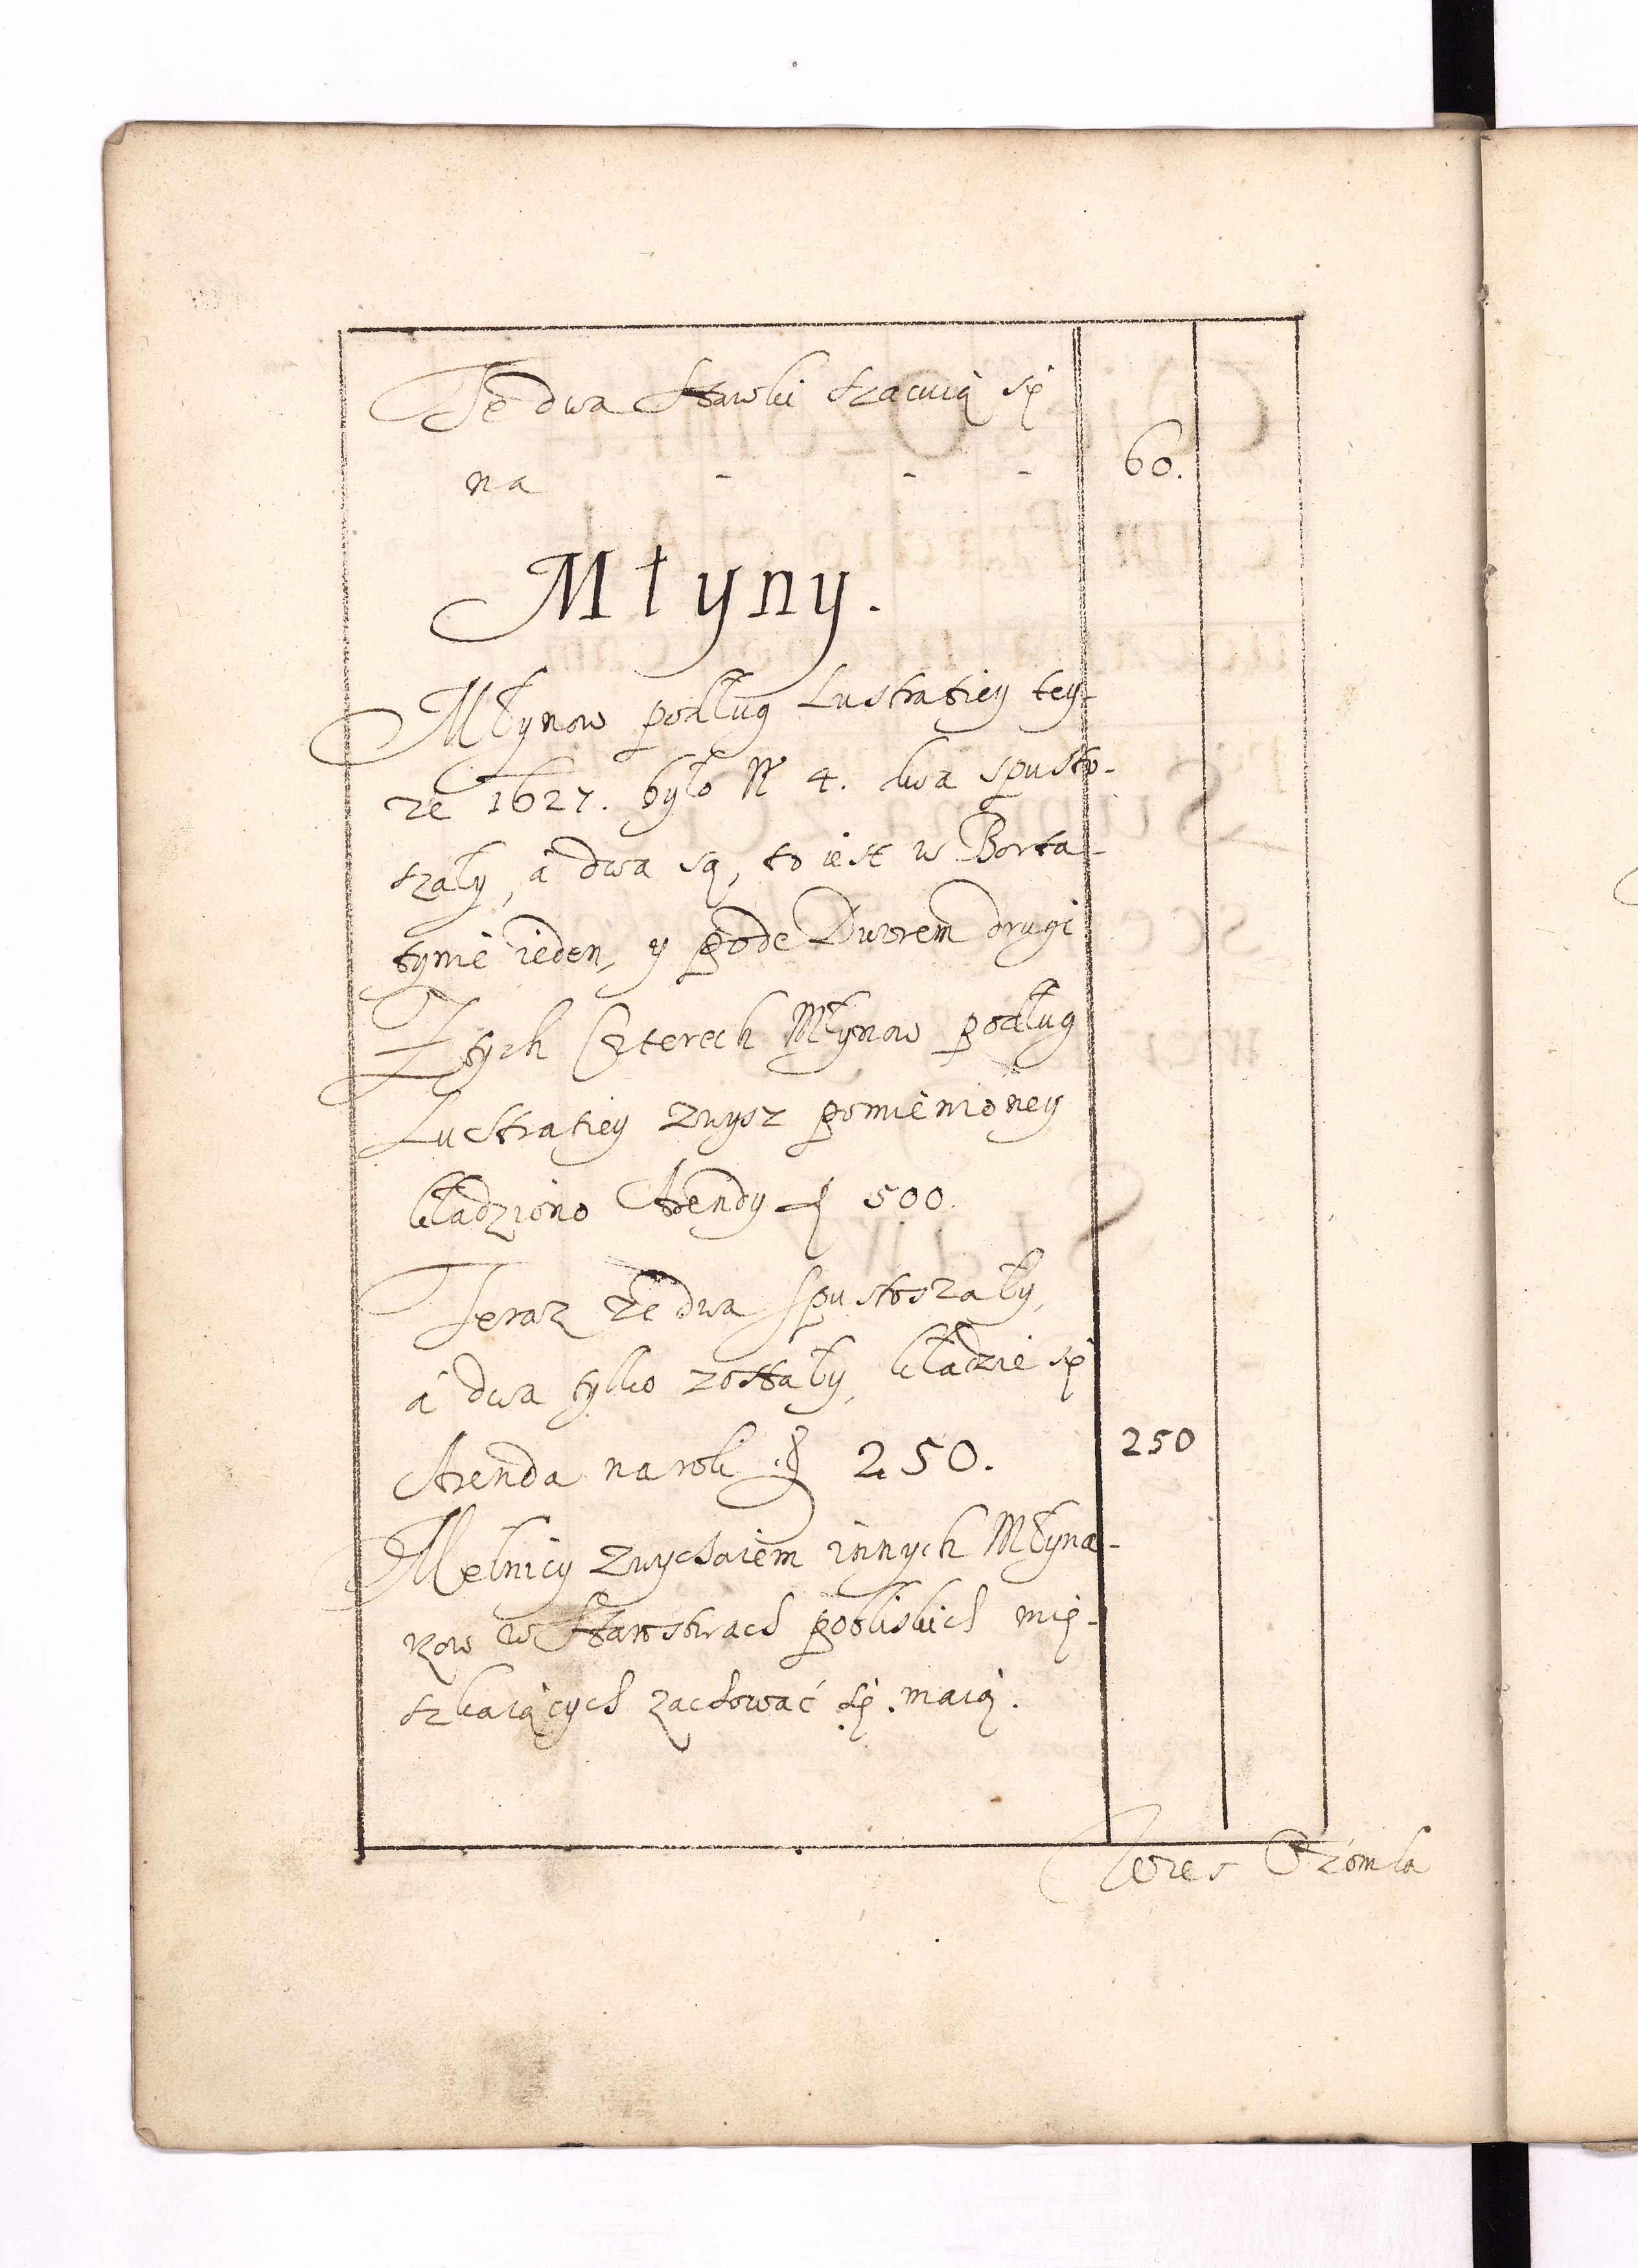 Te dwa stawki szacuią się
na - - - 60.
Młyny.
Młynow podług Lustratiey tey-
ze 1627. było N 4. dwa spusto-
szały, á dwa są, to iest w Borta-
tynie ieden, y pode Dworem drugi
Z tych Czterech Młynow podług
Lustratiey zwysz pomienioney
kładziono Arendy fl 500.
Teraz że dwa spustoszały,
á dwa tylko zostały, kładzie się
Arenda na rok fl 250. 250
Melnicy zwyczaiem innych Młyna-
rzow w Starostwach pobliskich mię-
szkaiących zachować się maią.
Ozomla